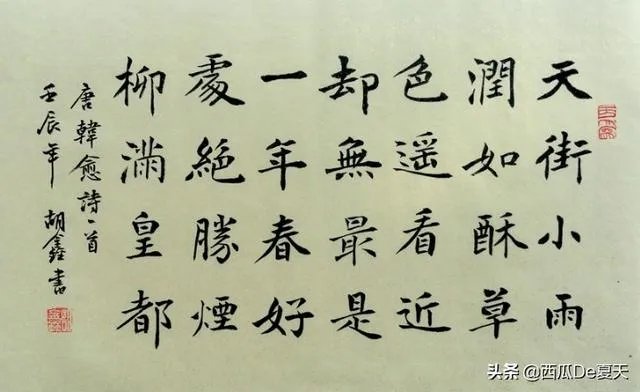 天街小雨
潤如酥草
色遥看近
却無最是
一年春好
處絶勝煙
柳滿皇都
唐韓愈詩一首
壬辰年 胡鑫書
头条 @西瓜De夏天